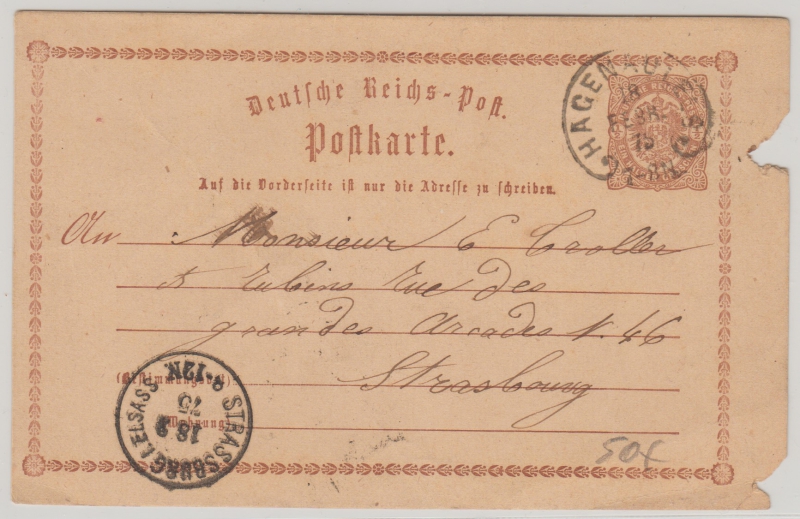 Deutsche Reichs-Post.
Postkarte.
Auf die Vorderseite ist nur die Adresse zu schreiben.
HAGENAU
18
75
An Monsieur E
Rue des
grandes Arcades N. 46
Strasbourg
(Bestimmungsort)
(Wohnung)
STRASSBURG I. ELSASS
18 2
75
8-12N.
50x